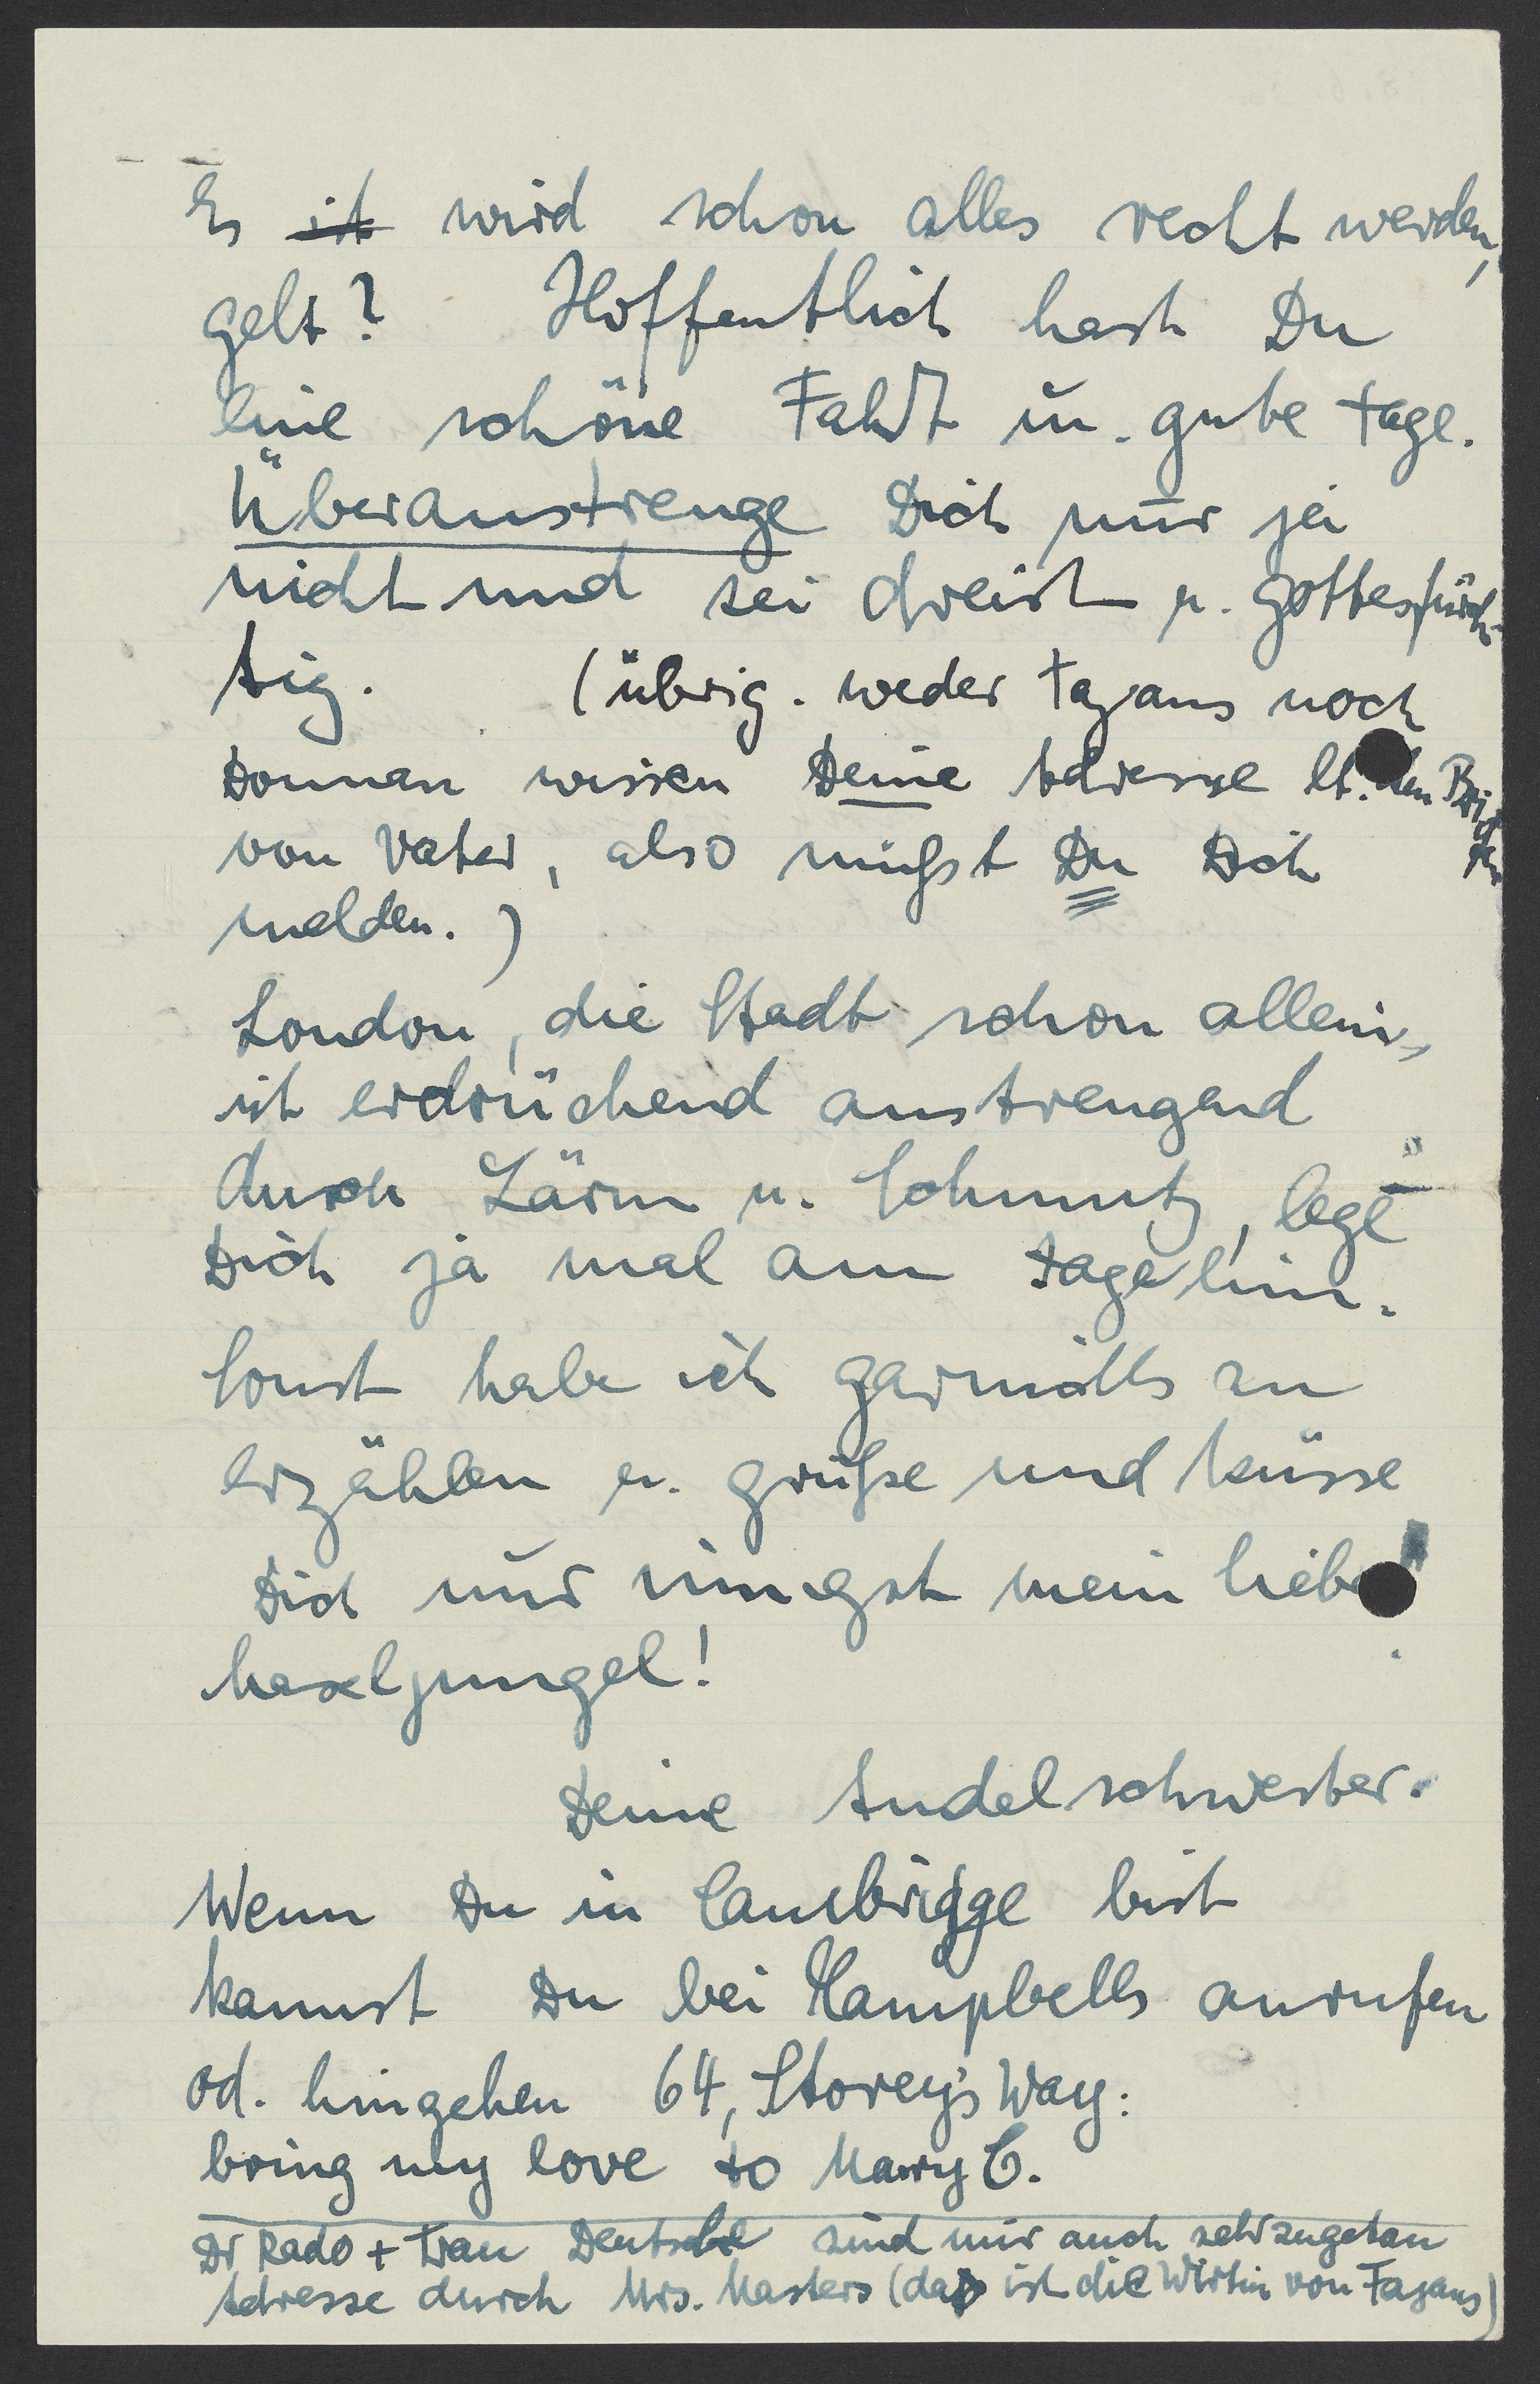 Es ist wird schon alles recht werden,
gelt? Hoffentlich hast Du
eine schöne Fahrt u. gute Tage.
Überanstrenge Dich nur ja
nicht und sei dreist u. gottesfürch-
tig. (übrig. weder Fajans noch
Donnan wissen Deine Adresse lt. den
von Vater, also müßst Du Dich
melden.)
London, die Stadt schon allein,
ist erdrückend anstrengend
durch Lärm u. Schmutz, lege
Dich ja mal am Tage hin.
Sonst habe ich garnichts zu
erzählen u. grüße und küsse
Dich nur innigst mein liebes
haseljungel!
Deine Andelschwester.
Wenn Du in Cambrigge bist
kannst Du bei Kampbells anrufen
od. hingehen 64, Storey's Way:
bring my love to Mary C.
Dr Rado + Frau Deutsche sind mir auch sehr zugetan
Adresse durch Mrs. Masters (das ist die Wirtin von Fajans)